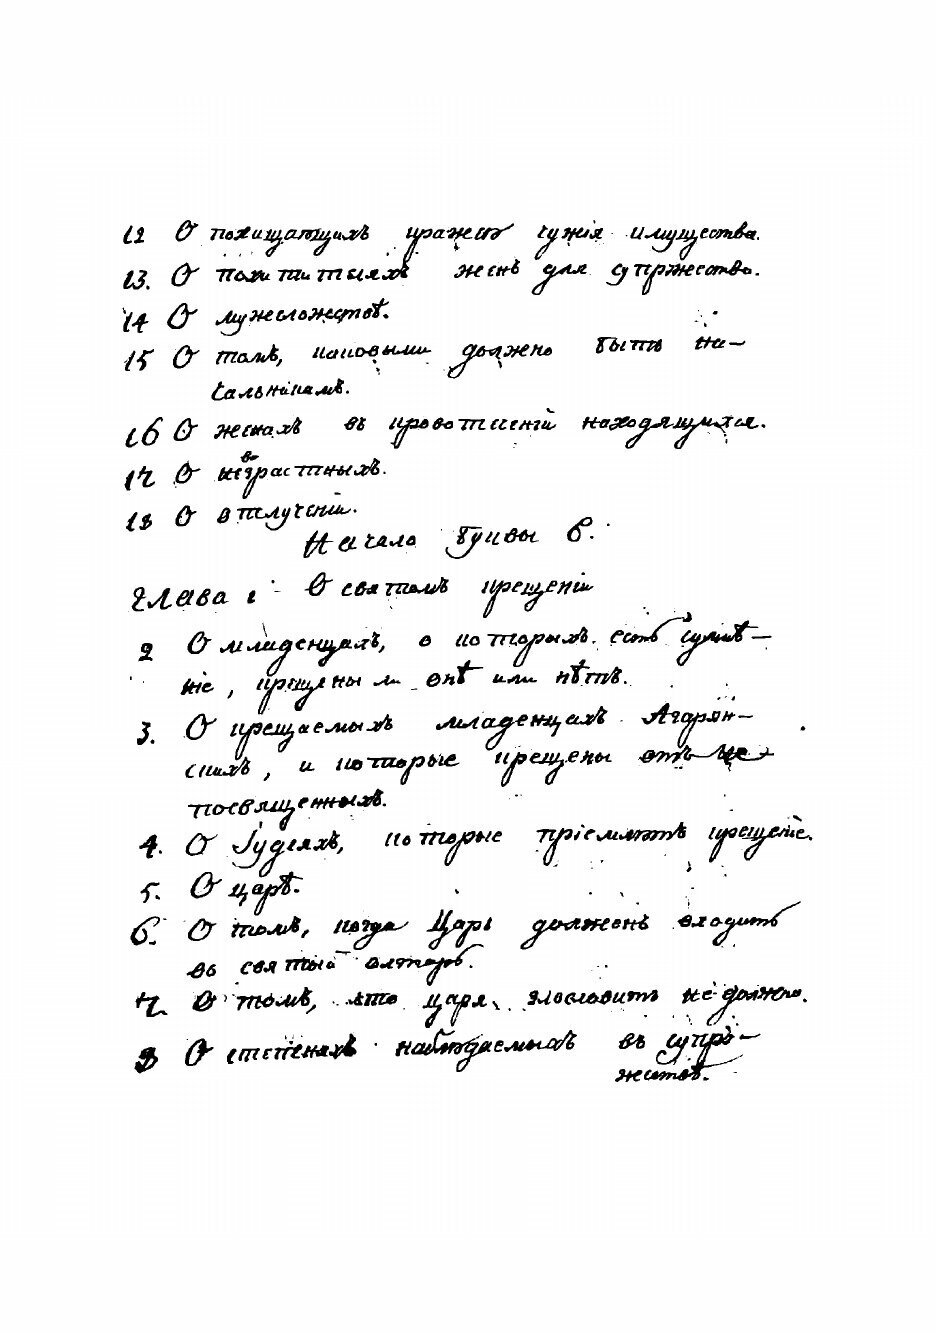 12 О похищающихъ кражею чужія имущества.
13. О похитителяхъ женъ для супржества.
14 О мужеложествѣ.
15 О томъ, каковыми должно быть на-
чальникамъ.
16 О женахъ въ кровотеченіи находящихся.
17 О невозрастныхъ.
18 О отлученіи.
Начало буквы В.
Глава 1 О святомъ крещеніи
2 О младенцахъ, о которыхъ есть сумнѣ-
ніе, крещены ли онѣ или нѣтъ.
3. О крещаемыхъ младенцахъ Агарян-
скихъ, и которые крещены отъ не-
посвященныхъ.
4. О Іудеяхъ, которые пріемлютъ крещеніе.
5. О царѣ.
6. О томъ, когда Царь долженъ входить
во святый олтарь.
7. О томъ, что царя злословить не должно.
8 О степеняхъ наблюдаемыхъ въ супрѣ-
жествѣ.